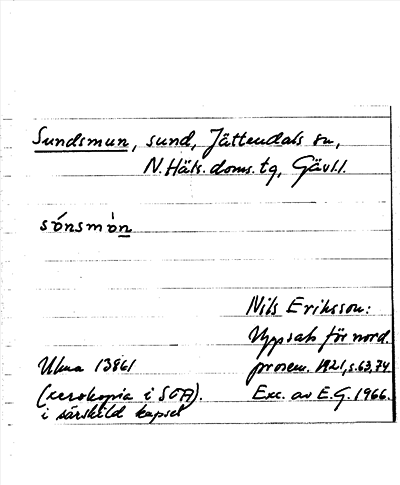 Sundsmun, sund, Jättendals sn,
N. Häls. doms. tg, Gävl.l.
sónsmòn
Nils Eriksson:
Uppsats för nord.
Ulma 13861 prosem. 1921, s. 63, 74
(xerokopia i SOA). Exc. av E.G. 1966.
i särskild kapsel